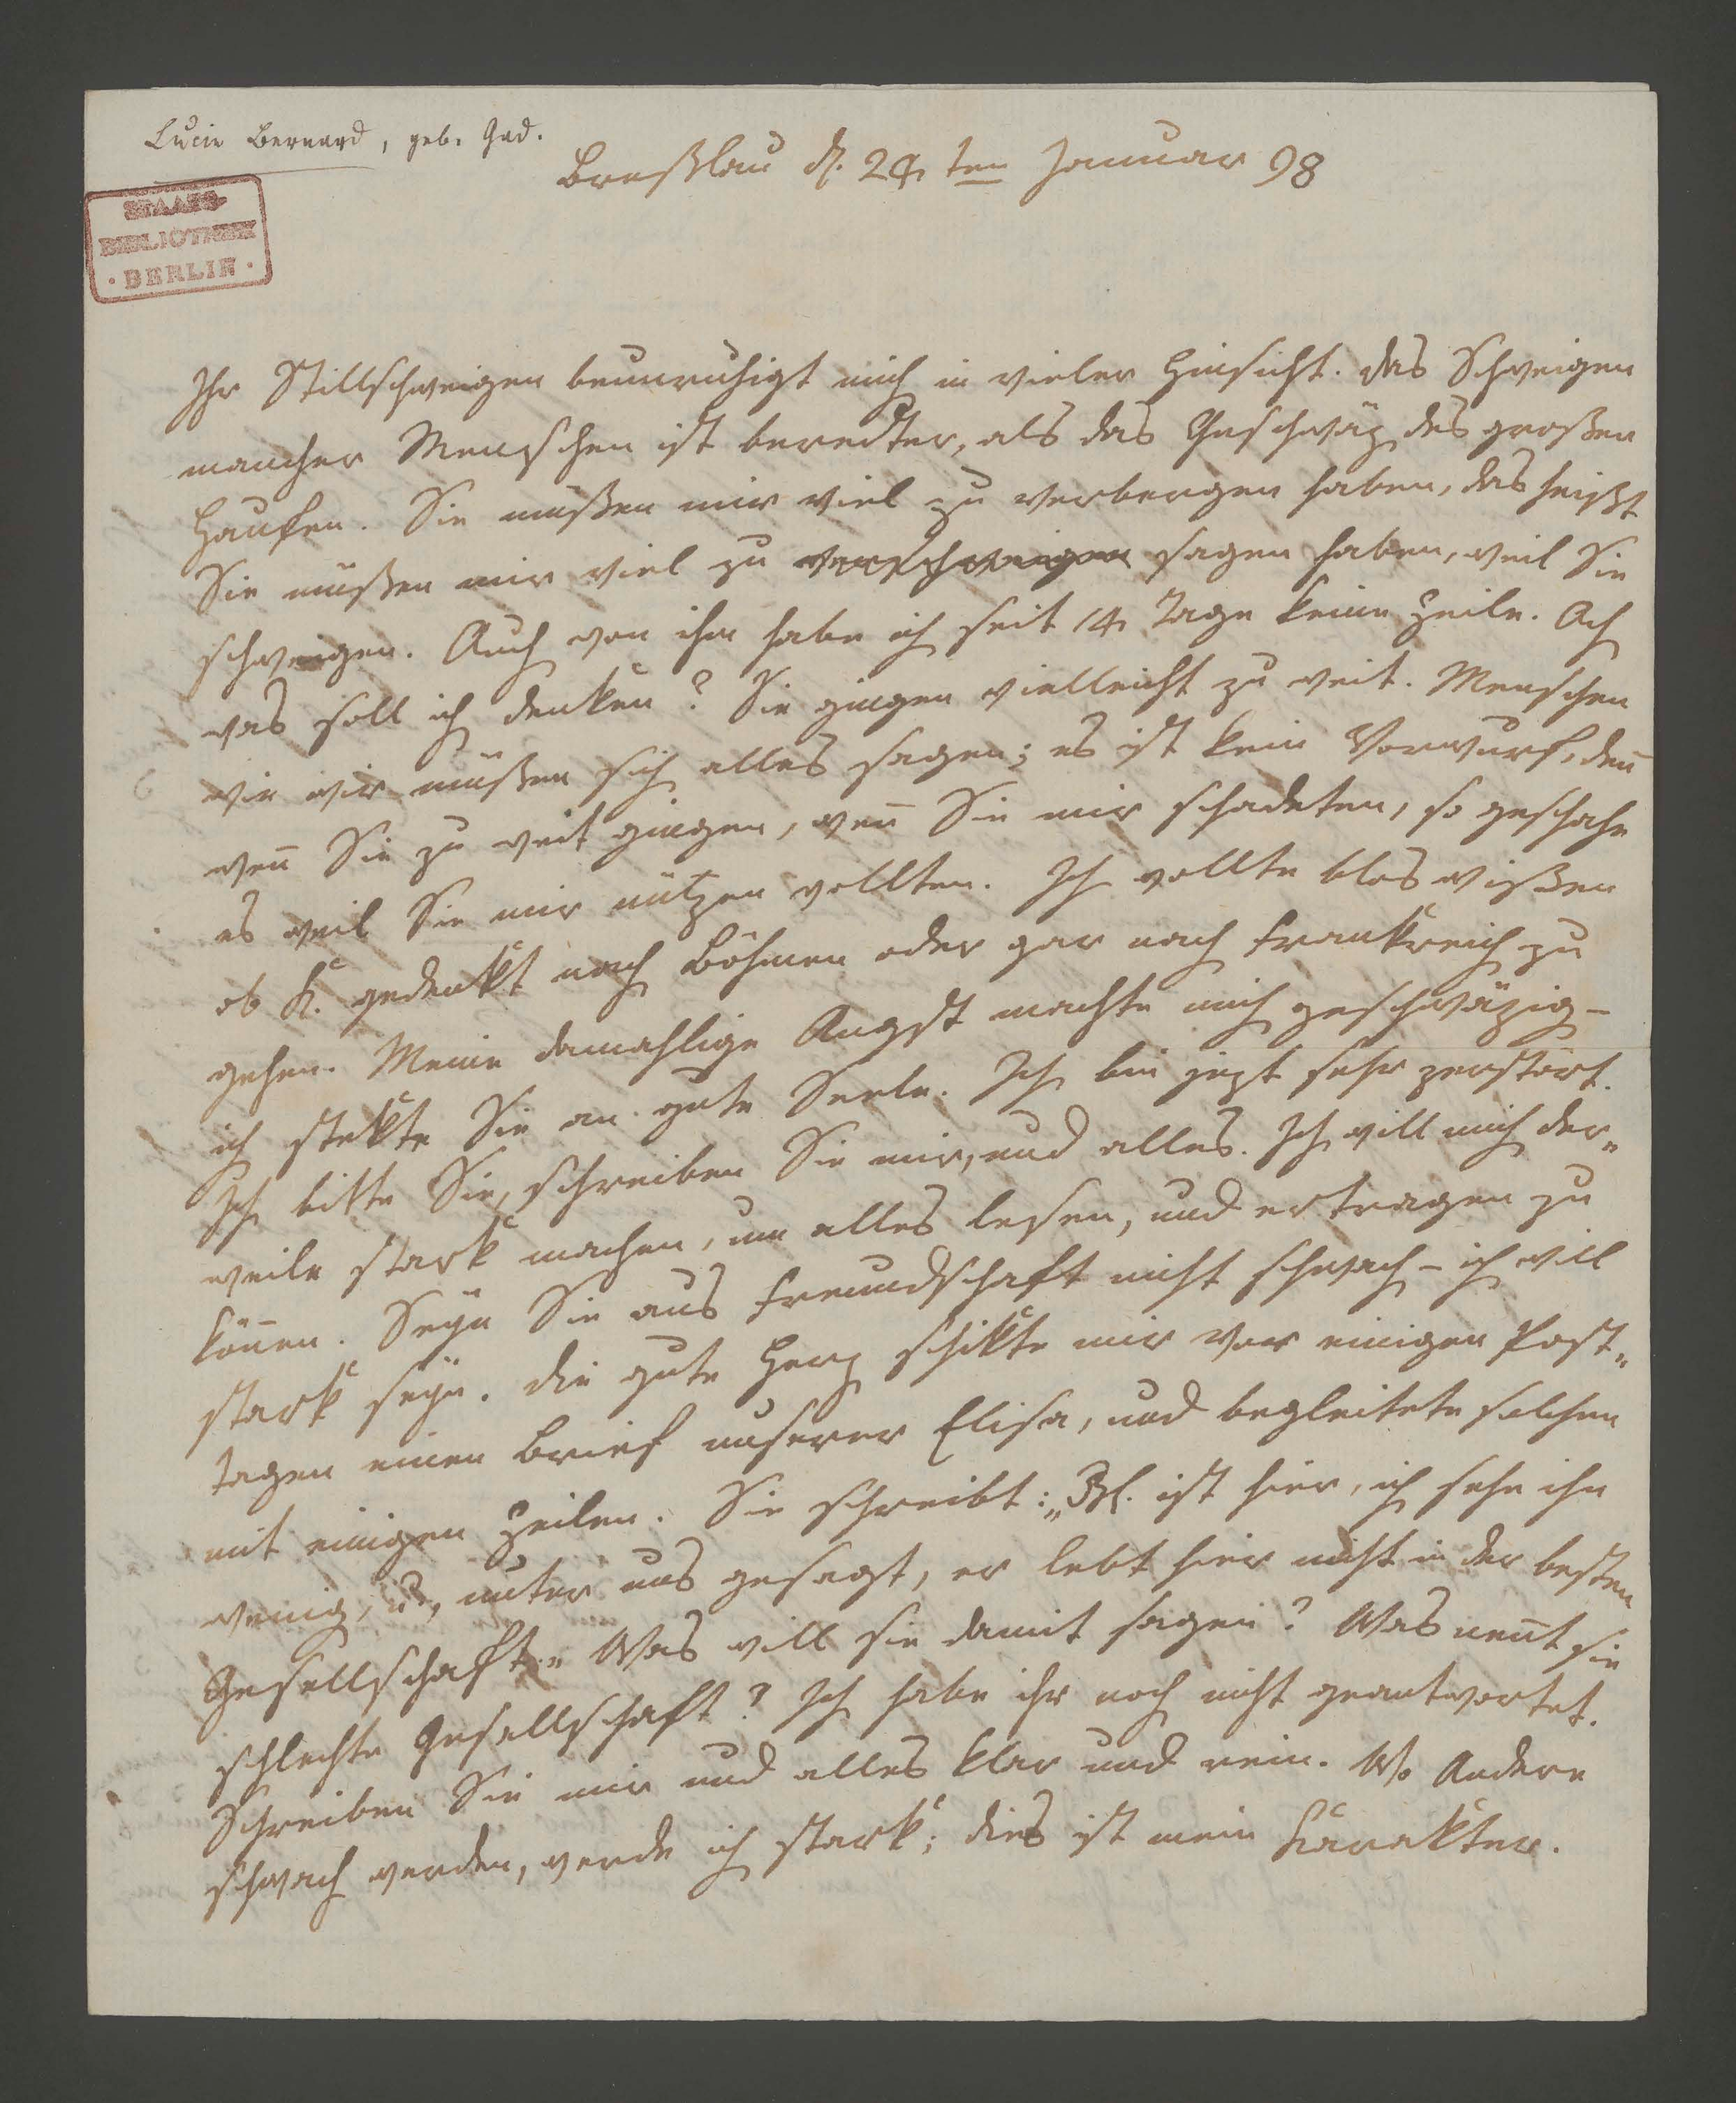 Lucie Bernard, geb. Gad.
Breßlau d. 24ten Januar 98
STAATS-
BIBLIOTHEK
· BERLIN ·
Ihr Stillschweigen beunruhigt mich in vieler Hinsicht. Das Schweigen
mancher Menschen ist beredter, als das Geschwäz des großen
Haufen. Sie müßen mir viel zu verbergen haben, das heißt
Sie müßen mir viel zu verschweigen sagen haben, weil Sie
schweigen. Auch von ihm habe ich seit 14 Tage keine Zeile. Ach
was soll ich denken? Sie gingen vielleicht zu weit. Menschen
wie wir müßen sich alles sagen; es ist kein Vorwurf, den̄
wen̄ Sie zu weit gingen, wen̄ Sie mir schadeten, so geschahe
es weil Sie mir nützen wollten. Ich wollte blos wißen
ob K. gedenkt nach Böhmen oder gar nach Frankreich zu
gehen. Meine damahlige Angst machte mich geschwäzig –
ich stekte Sie an gute Seele. Ich bin jezt sehr zerstört.
Ich bitte Sie, schreiben Sie mir, und alles. Ich will mich der„
weile stark machen, um alles lesen, und ertragen zu
kön̄en. Seyn Sie aus Freundschaft nicht schwach – ich will
stark seyn. Die gute Herz schikte mir vor einigen Post„
tagen einen Brief unserer Elisa, und begleitete solchen
mit einigen Zeilen. Sie schreibt: „ ist hier, ich sehe ihn
wenig, u., unter uns gesagt, er lebt hier nicht in der besten
Gesellschaft.„ Was will sie damit sagen? Was nen̄t sie
schlechte Gesellschaft? Ich habe ihr noch nicht geantwortet.
Schreiben Sie mir und alles klar und rein. Wo Andere
schwach werden, werde ich stark; dies ist mein Karakter.